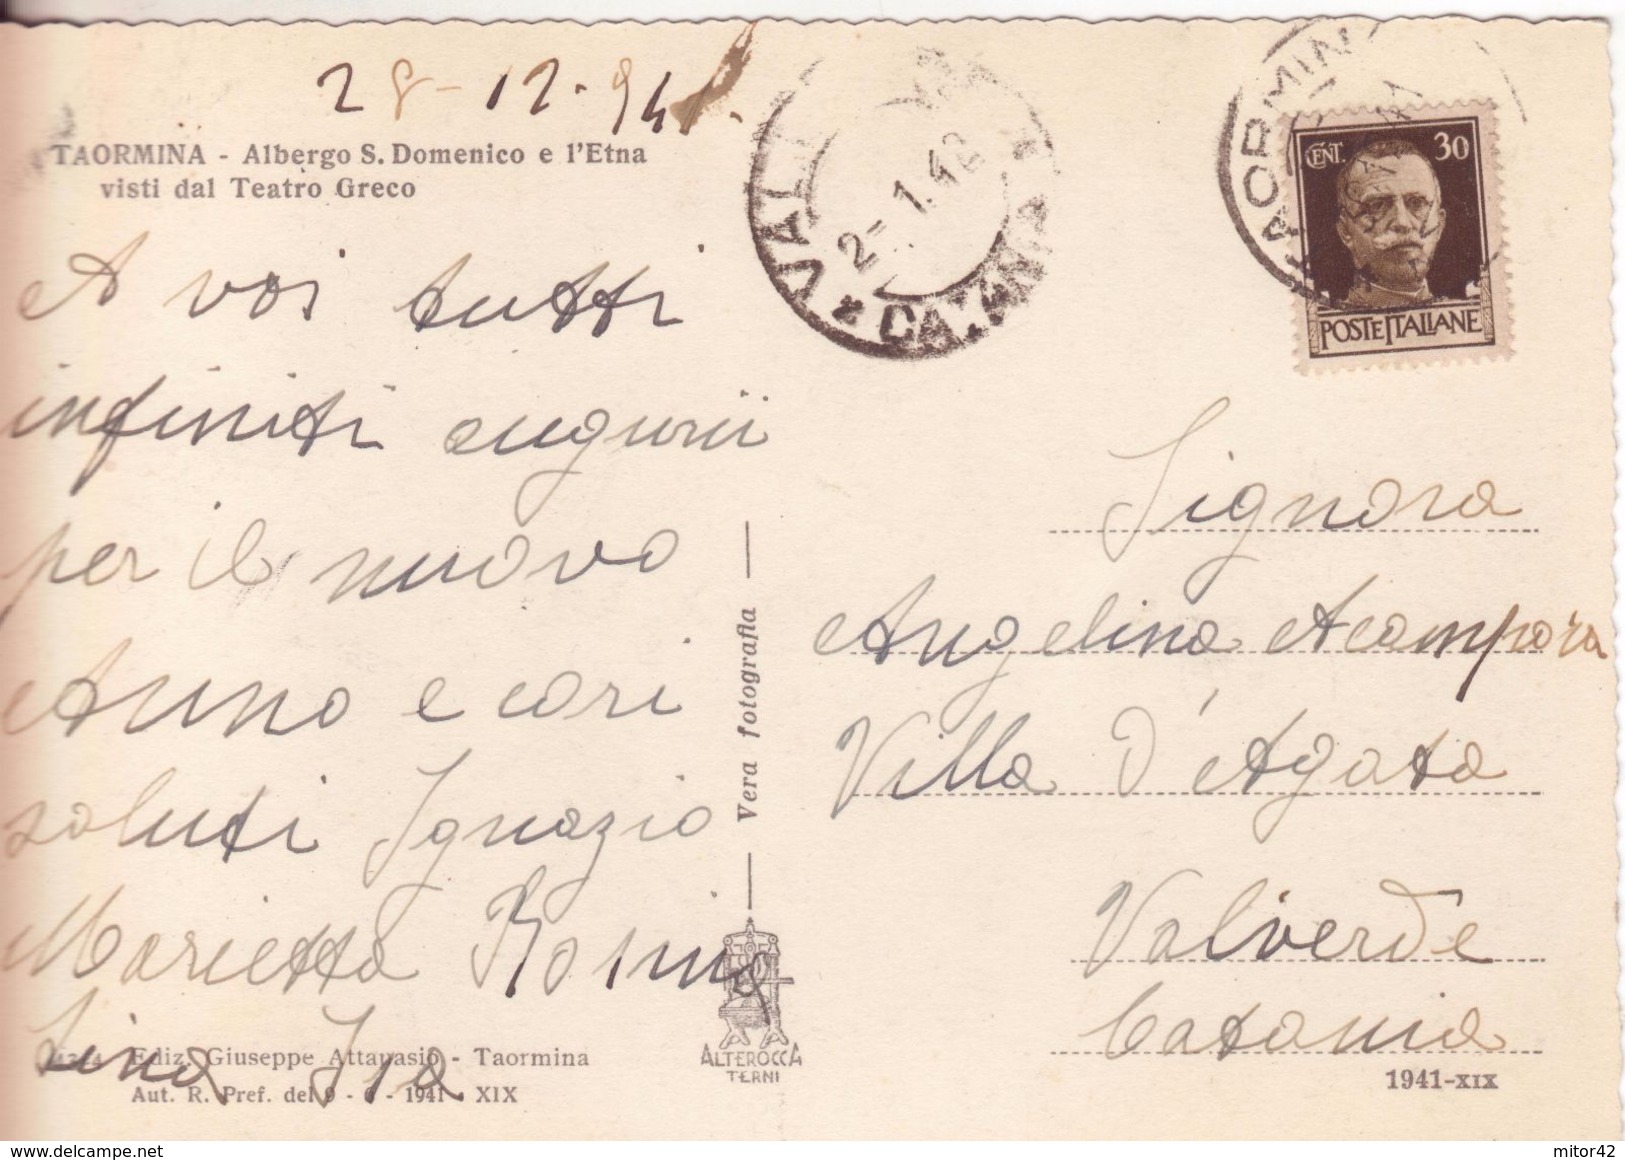 28-12-941.
TAORMINA - Albergo S. Domenico e l'Etna
visti dal Teatro Greco
A voi tutti
infiniti auguri
per il nuovo
Anno e cari
saluti Ignazio
Marietta Rosina
Lina Isa
Ediz. Giuseppe Attanasio - Taormina
Aut. R. Pref. del 9 - 6 - 1941 - XIX
Vera fotografia
ALTEROCCA
TERNI
CATANIA
2-1.42
TAORMINA
CENT. 30
POSTE ITALIANE
Signora
Angelina Acampora
Villa D'Agata
Valverde
Catania
1941-XIX
mitor42